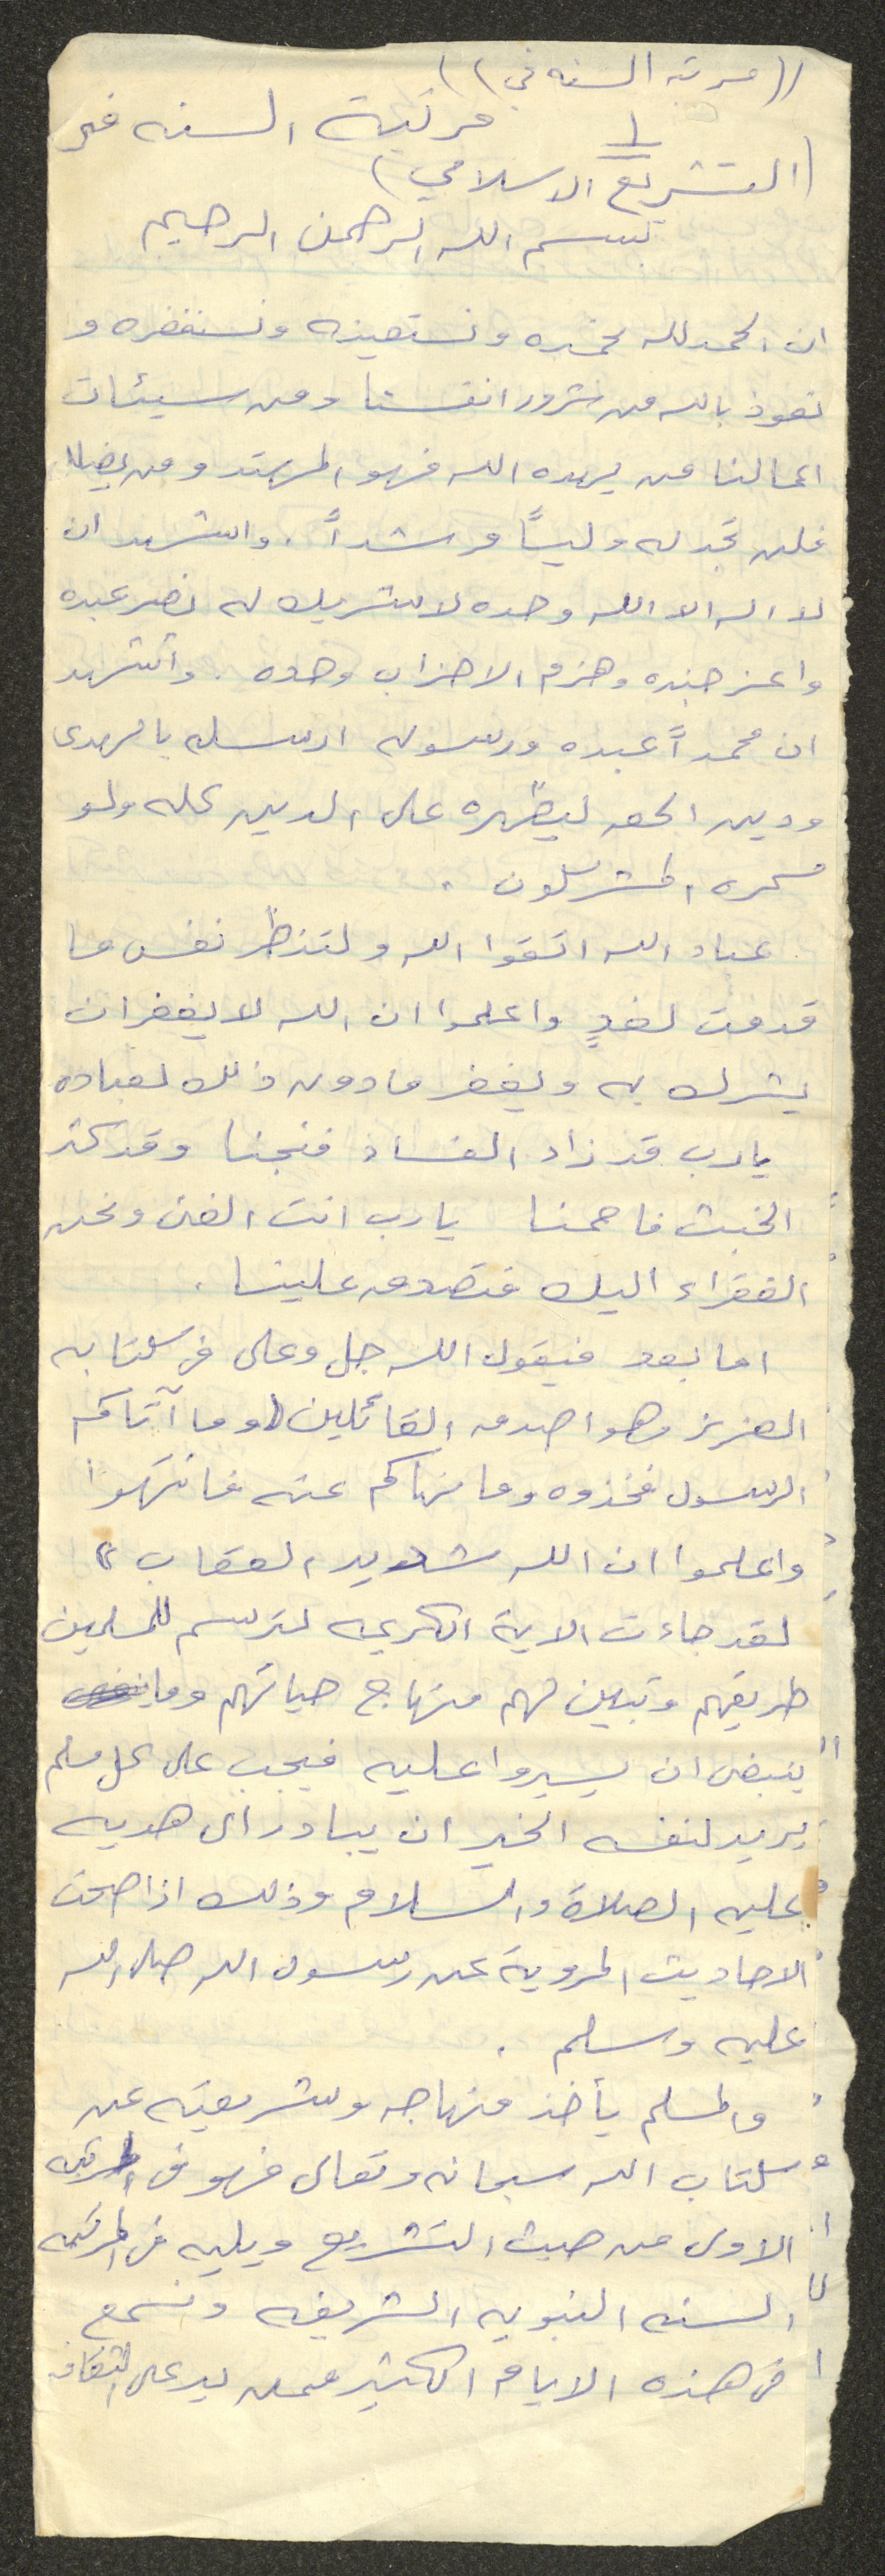 ((مرتبة السنه في))
١
مرتبة السنه في
(التشريع الاسلامي)
بسم الله الرحمن الرحيم
ان الحمد لله نحمده ونستعينه ونستغفره و
نعوذ بالله من شرور انفسنا ومن سيئات
اعمالنا من يهده الله فهو المهتد ومن يضلل
فلن تجد له وليـًا مرشداً . واشهد ان
لا اله الا الله وحده لا شريك له نصر عبده
واعز جنده وهزم الاحزاب وحده . واشهد
ان محمداً عبده ورسوله ارسله بالهدى
ودين الحق ليظهره على الدين كله ولو
كره المشركون .
عباد الله اتقوا الله ولتنظر نفس ما
قدمت لغدٍ واعلموا ان الله لا يغفر ان
يشرك به ويغفر ما دون ذلك لعباده
يارب قد زاد الفساد فنجنا وقد كثر
الخبث فاحمنا يارب انت الغني ونحن
الفقراء اليك فتصدق علينا .
اما بعد فيقول الله جل وعلى في كتابه
العزيز وهو اصدق القائلين ((وما آتاكم
الرسول فخذوه وما نهاكم عنه فانتهوا
واعلموا ان الله شديد العقاب ))
لقد جاءت الاية الكريمه لترسم للمسلمين
طريقهم وتبين لهم منهاج حياتهم وما
ينبغي ان يسيروا عليه فيجب على كل مسلم
يريد لنفسه الخير ان يبادر الى هديه
عليه الصلاة والسلام وذلك اذا صحت
الاحاديث المروية عن رسول الله صلى الله
عليه وسلم .
والمسلم يأخذ منهاجه وشريعته عن
كتاب الله سبحانه وتعالى فهو في المرتبه
الاولى من حيث التشريع ويليه في المرتبه
السنه النبويه الشريفه ونسمع
في هذه الايام الكثير ممن يدعي الثقافه